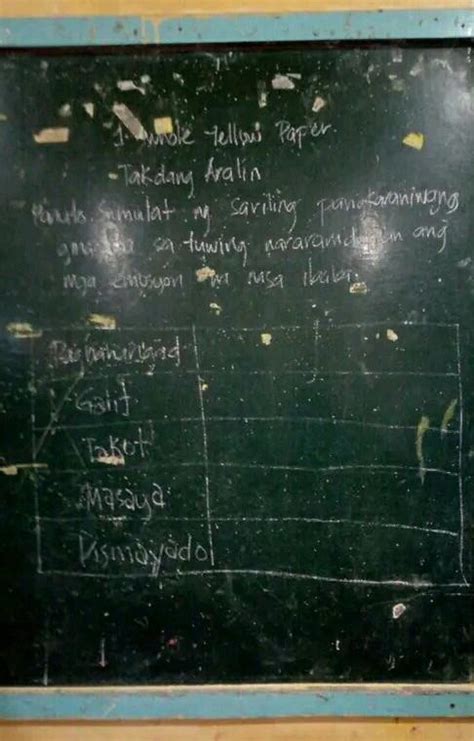 1 whole Yellow Paper.
Takdang Aralin
Panuto. Sumulat ng sariling pangkaraniwang
sa tuwing nararamdaman ang
mga emosyon na nasa ibaba.
Paghahangad
Galit
Takot
Masaya
Dismayado